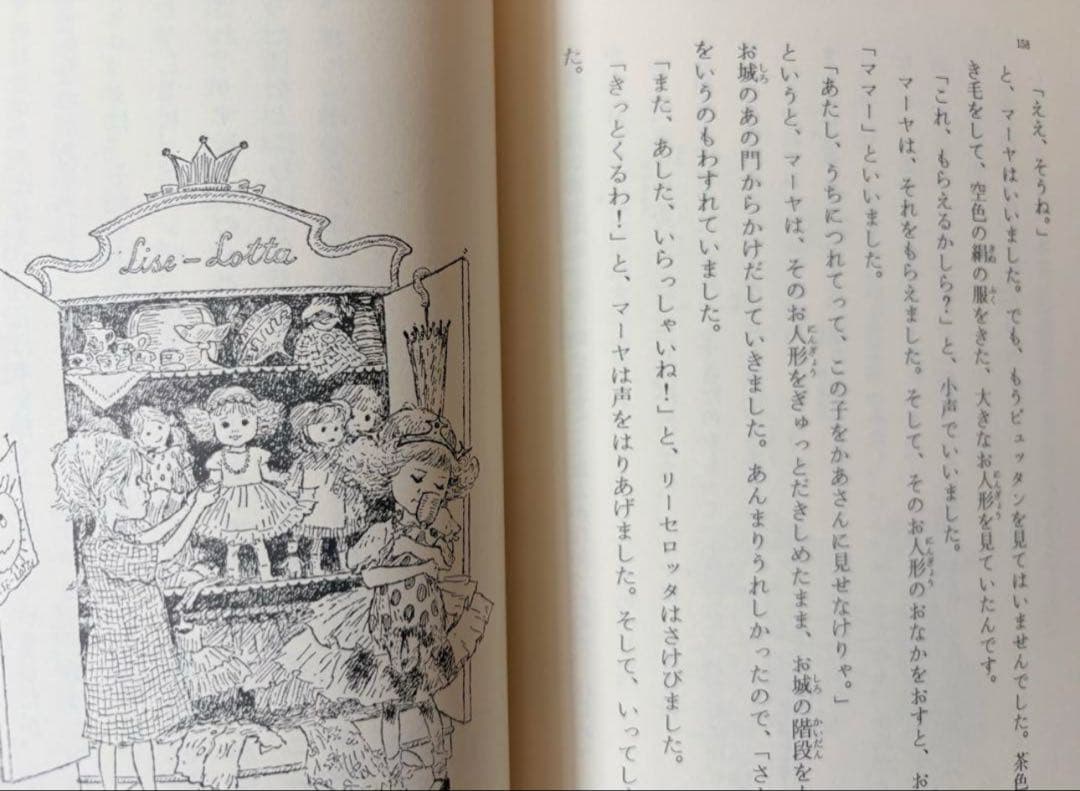 158
「ええ、そうね。」
と、マーヤはいいました。でも、もうビュッタンを見てはいませんでした。茶色
き毛をして、空色の絹の服をきた、大きなお人形を見ていたんです。
「これ、もらえるかしら?」と、小声でいいました。
マーヤは、それをもらえました。そして、そのお人形のおなかをおすと、お
「ママー」といいました。
「あたし、うちにつれてって、この子をかあさんに見せなけりゃ。」
というと、マーヤは、そのお人形をぎゅっとだきしめたまま、お城の階段を
お城のあの門からかけだしていきました。あんまりうれしかったので、「さ
をいうのもわすれていました。
「また、あした、いらっしゃいね!」と、リーセロッタはさけびました。
「きっとくるわ!」と、マーヤは声をはりあげました。そして、いってし
た。
Lise-Lotta